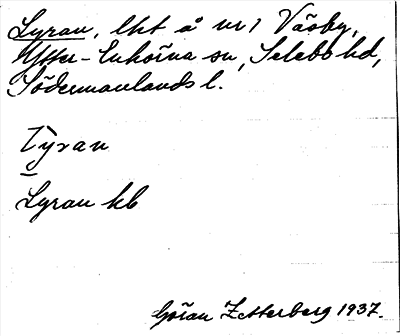 Lyran, lht å nr 1 Väsby,
Ytter-Enhörna sn, Selebo hd,
Södermanlands l.
Lyran
Lyran hb
Göran Zetterberg 1937.